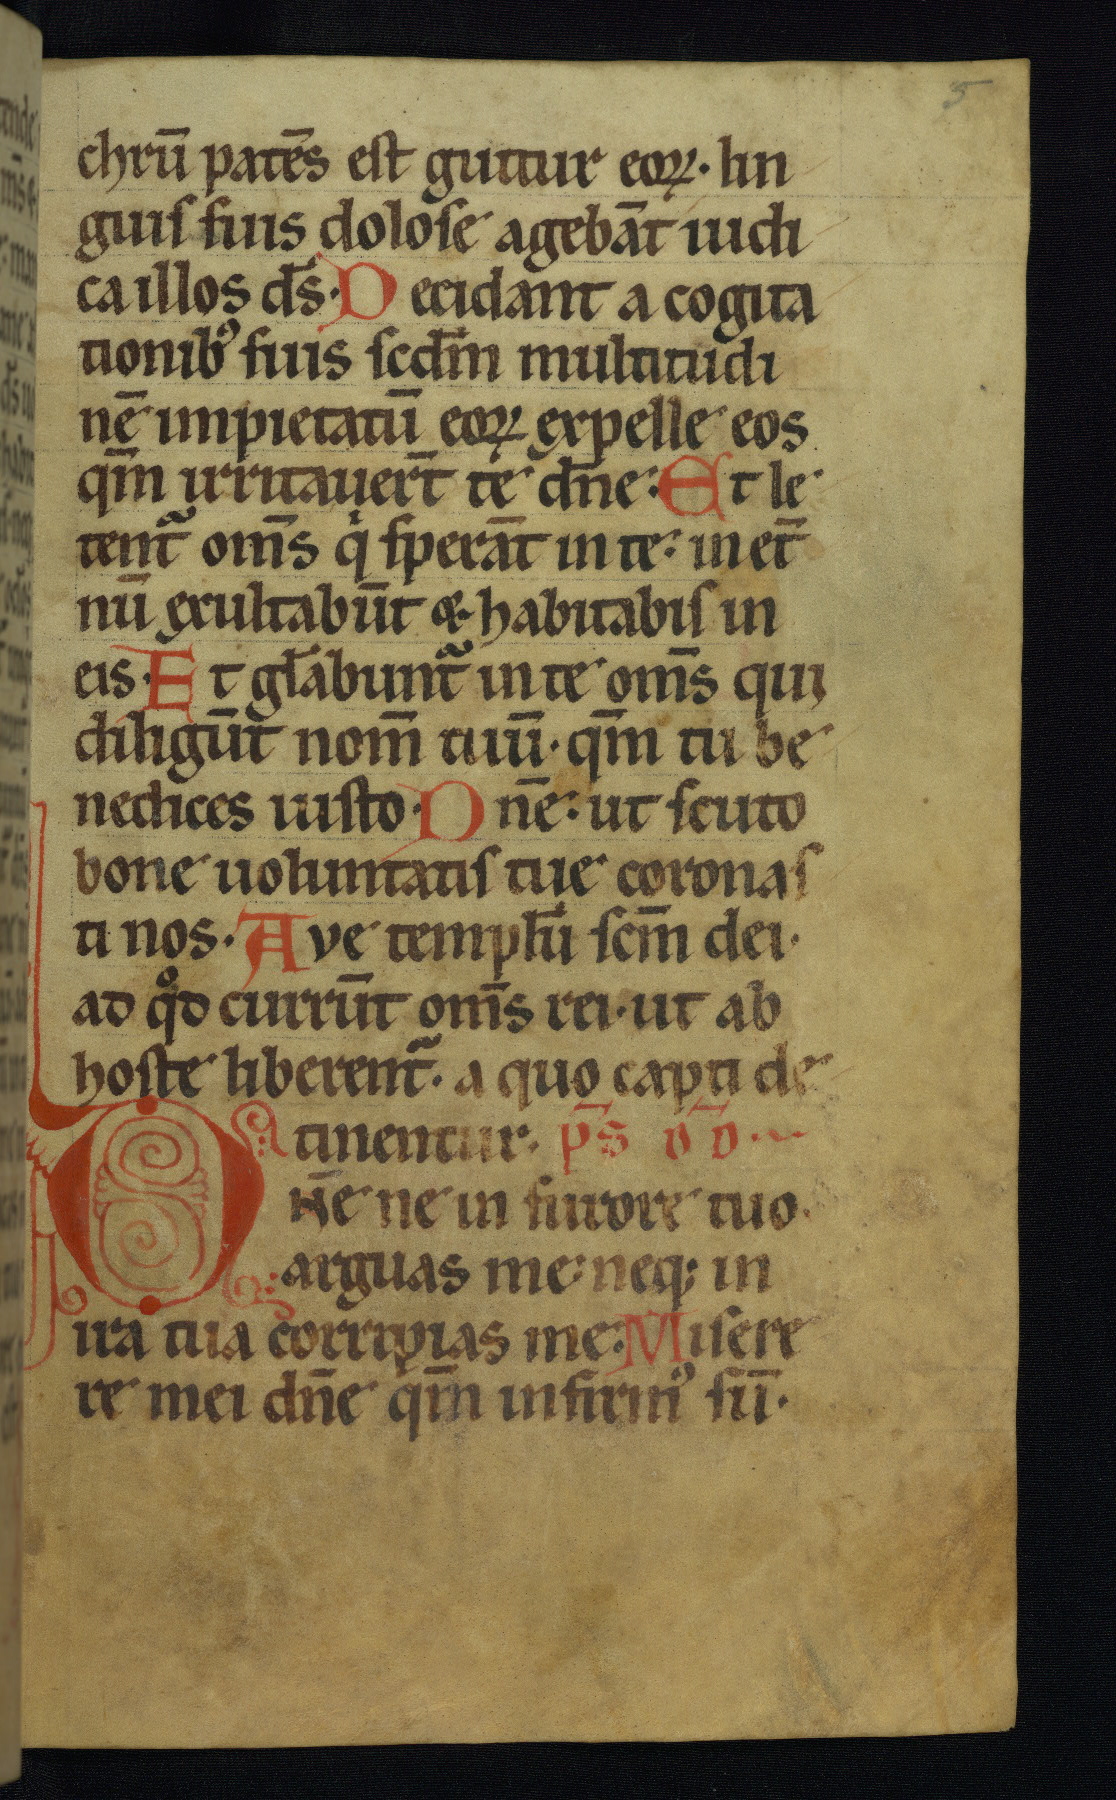 5
chrū patēs est guttur eoꝝ· lin
guis suis dolose agebāt iudi
ca illos ds̄· Decidant a cogita
tionibꝰ suis scdm̄ multitudi
nē impietatū eoꝝ expelle eos
qm̄ irritauert̄ te dn̄e: Et le
tent᷑ om̄s qͥ sperāt in te: in et̄
nū exultabūt & habitabis in
eis· Et gl̄abunt᷑ in te om̄s qui
diligūt nom̄ tuū· qm̄ tu be
nedices iusto· Dn̄e: ut scuto
bone uoluntatis tue coronas
ti nos· Ave templū scm̄ dei·
ad qͦd currūt om̄s rei· ut ab
hoste liberent᷑· a quo capti de
tinentur· ps̄ dd̄
Dn̄e ne in furore tuo
arguas me: neqꝫ in
ira tua corripias me: Misere
re mei dn̄e qm̄ infirmꝰ sū·